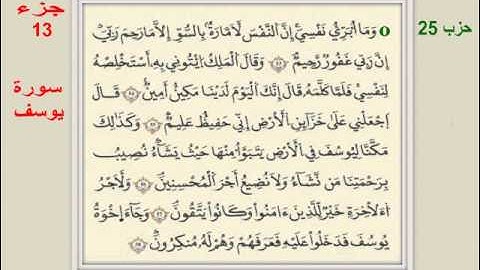 جزء
13
حزب 25
سورة
يوسف
وَمَآ أُبَرِّئُ نَفْسِيَ إِنَّ اَلنَّفْسَ لَأَمَّارَةُۢ بِالسُّوٓءِ الَّا مَا رَحِمَ رَبِّيَ
إِنَّ رَبِّي غَفُورٞ رَّحِيمٞ وَقَالَ اَلْمَلِكُ اُ۪يتُونِي بِهِۦٓ أَسْتَخْلِصْهُ
لِنَفْسِي فَلَمَّا كَلَّمَهُۥ قَالَ إِنَّكَ اَلْيَوْمَ لَدَيْنَا مَكِينٌ أَمِينٞ قَالَ
اَجْعَلْنِي عَلَىٰ خَزَآئِنِ اِلْأَرْضِ إِنِّي حَفِيظٌ عَلِيمٞ وَكَذَٰلِكَ
مَكَّنَّا لِيُوسُفَ فِي اِلْأَرْضِ يَتَبَوَّأُ مِنْهَا حَيْثُ يَشَآءُ نُصِيبُ
بِرَحْمَتِنَا مَن نَّشَآءُ وَلَا نُضِيعُ أَجْرَ اَلْمُحْسِنِينَ وَلَأَجْرُ
اُلْأٓخِرَةِ خَيْرٞ لِّلَّذِينَ ءَامَنُواْ وَكَانُواْ يَتَّقُونَ وَجَآءَ اخْوَةُ
يُوسُفَ فَدَخَلُواْ عَلَيْهِ فَعَرَفَهُمْ وَهُمْ لَهُۥ مُنكِرُونَ